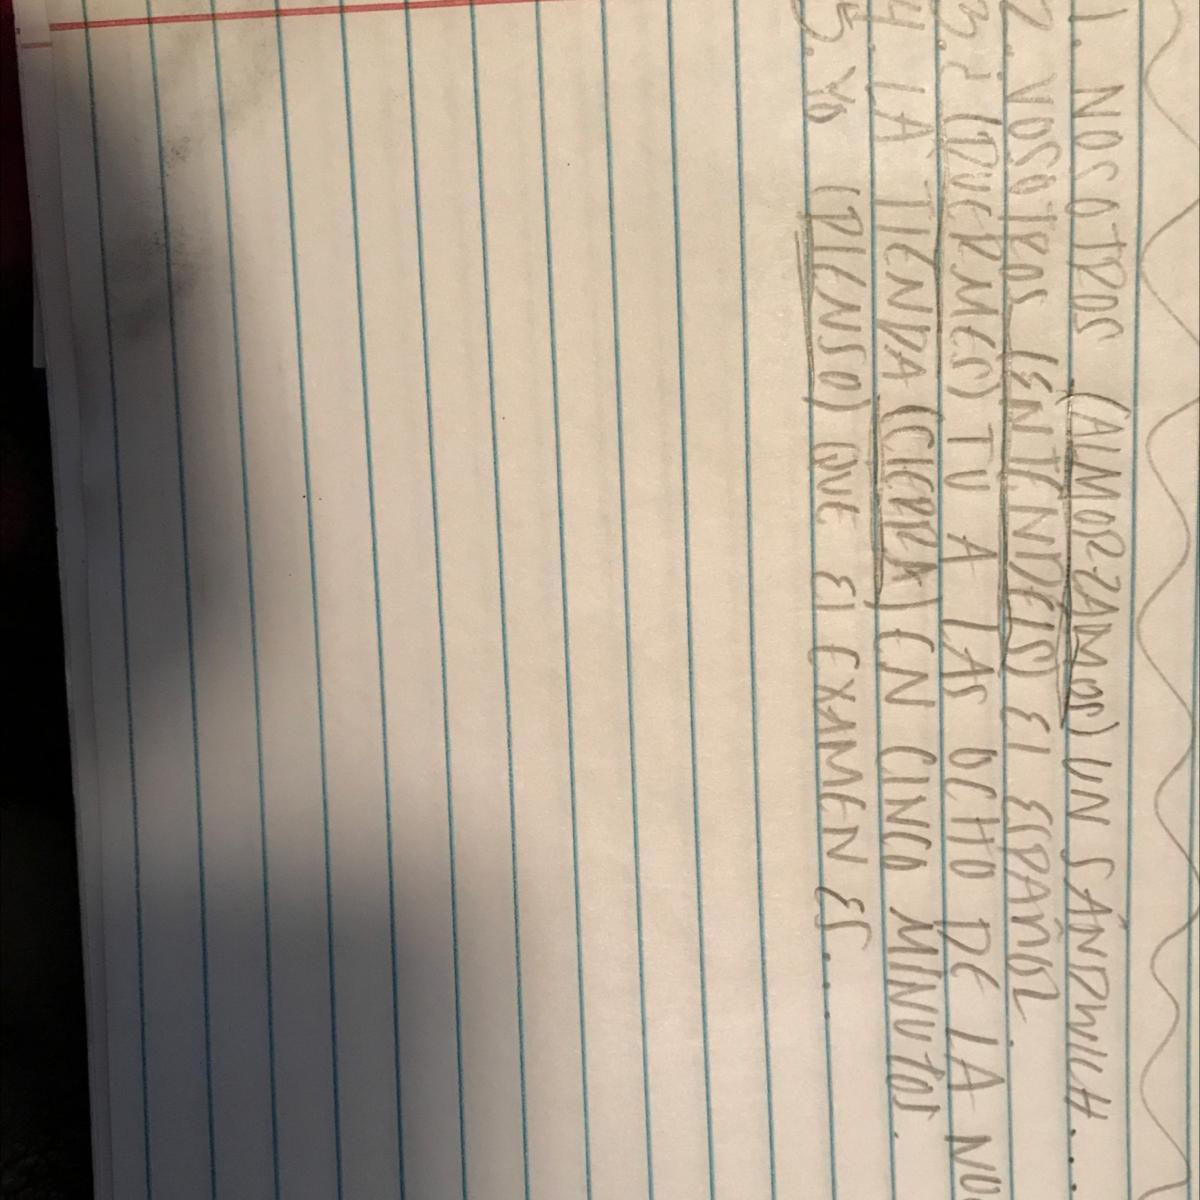 1. NOSOTROS (ALMORZAMOS) UN SÁNDWICH....
2. VOSOTROS (ENTENDÉIS) El ESPAÑOL.
3. ¿ (DUERMES) TU A LAS OCHO DE LA
4. LA TIENDA (CIERRA) EN CINCO MINUTOS.
5. YO (PIENSO) QUE El EXAMEN ES....